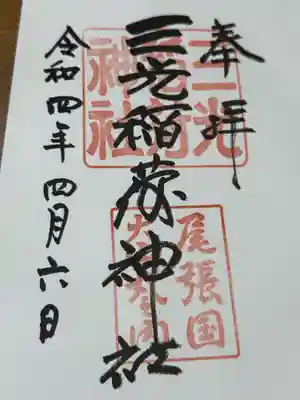 奉拝
三光稲荷神社
令和四年 四月六日
三光稲荷神社
尾張国犬山